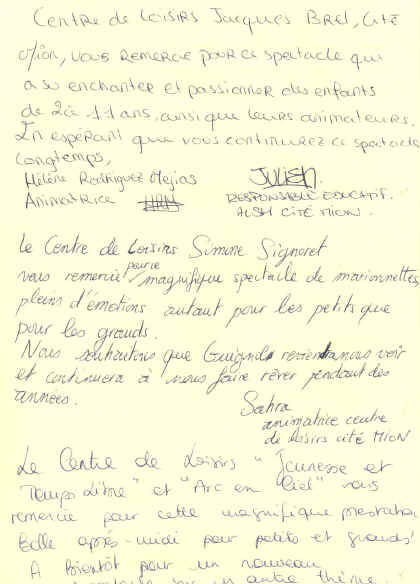 Centre de Loisirs Jacques Brel, Cité
Mion, vous remercie pour ce spectacle qui
a su enchanter et passionner des enfants
de 2 à 11 ans, ainsi que leurs animateurs.
En espérant que vous continurez ce spectacle
longtemps,
Hélène Rodriguez Mejias
Animatrice HRM
Julien.
Responsable Educatif.
ALSH Cité Mion.
Le Centre de Loisirs Simone Signoret
vous remercie pour ce magnifique spectacle de marionnettes
pleins d'émotions autant pour les petits que
pour les grands.
Nous souhaitons que Guignol revienta nous voir
et continuera à nous faire rêver pendant des
années.
Sahra
animatrice centre
de loisirs cité Mion
Le Centre de Loisirs "Jeunesse et
Temps Libre" et "Arc en Ciel" vous
remercie pour cette magnifique prestation
Belle après-midi pour petits et grands!
A Bientôt pour un nouveau
sur un autre thème.